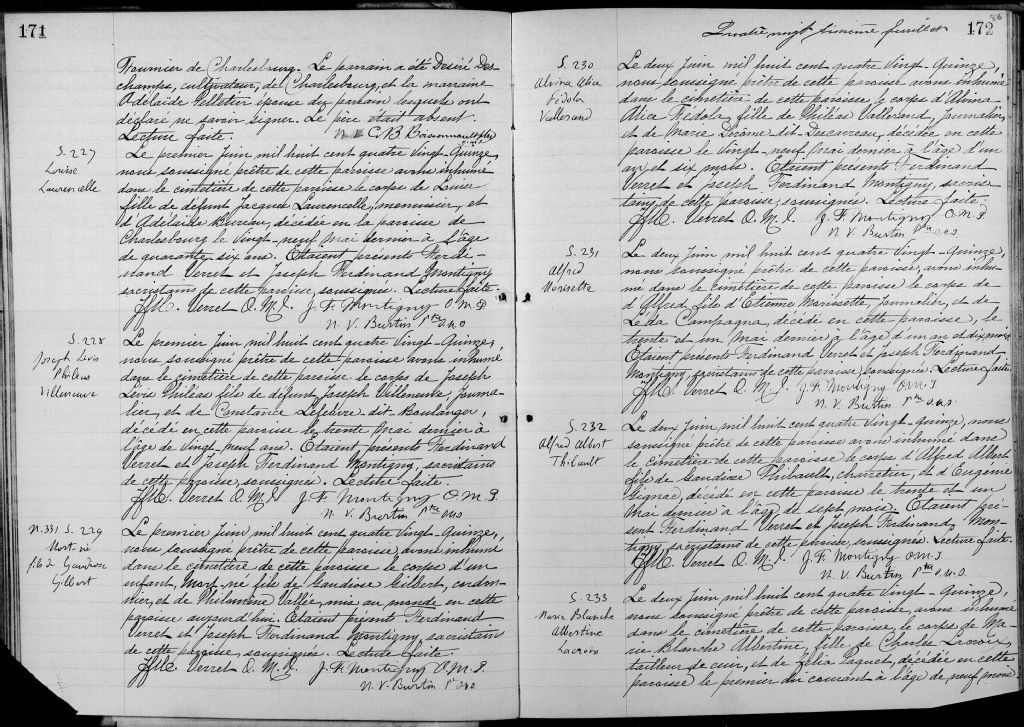 171
Fournier de Charlesbourg. Le parrain a été Désiré Des-
champs, cultivateur, de Charlesbourg, et la marraine
Adélaïde Pelletier épouse du parrain lesquels ont
déclaré ne savoir signer. Le père était absent.
Lecture faite.
S. 227
Louise
Laurencelle
Le premier Juin mil huit cent quatre vingt-quinze,
nous soussigné prêtre de cette paroisse avons inhumé
dans le cimetière de cette paroisse le corps de Louise
fille de défunt Jacques Laurencelle, menuisier, et
d'Adélaïde Bureau, décédée en la paroisse de
Charlesbourg le vingt-neuf Mai dernier à l'âge
de quarante six ans. Etaient présents Ferdi-
nand Verret et Joseph Ferdinand Montigny
sacristains de cette paroisse, soussignés. Lecture faite.
Verret O.M.I. J. F. Montigny O.M.I.
N. V. Burtin Ptre O.M.I
S. 228
Joseph Lévis
Philéas
Villeneuve
Le premier Juin mil huit cent quatre vingt-quinze,
nous soussigné prêtre de cette paroisse avons inhumé
dans le cimetière de cette paroisse le corps de Joseph
Lévis Philéas fils de défunt Joseph Villeneuve, journa-
lier, et de Constance Lefebvre dit Boulanger,
décédé en cette paroisse le trente Mai dernier à
l'âge de vingt-neuf ans. Etaient présents Ferdinand
Verret et Joseph Ferdinand Montigny, sacristains
de cette paroisse, soussignés. Lecture faite.
Verret O.M.I. J. F. Montigny O.M.I.
N. V. Burtin Ptre O.M.I
N. 331 S. 229
Mort né
fils de Gaudiose
Gilbert
Le premier Juin mil huit cent quatre vingt-quinze,
nous soussigné prêtre de cette paroisse, avons inhumé
dans le cimetière de cette paroisse le corps d'un
enfant, Mort-né fils de Gaudiose Gilbert, cordon-
nier, et de Philomène Vallée, mis au monde en cette
paroisse aujourd'hui. Etaient présents Ferdinand
Verret et Joseph Ferdinand Montigny, sacristains
de cette paroisse, soussignés. Lecture faite.
Verret O.M.I. J. F. Montigny O.M.I.
N. V. Burtin Ptre O.M.I
Quatre vingt sixième feuillet
172
86
S. 230
Alvina Alice
Fédola
Vallerand
Le deux Juin mil huit cent quatre vingt-quinze,
nous soussigné prêtre de cette paroisse avons inhumé
dans le cimetière de cette paroisse le corps d'Alvina
Alice Fédola, fille de Philéas Vallerand, journalier,
et de Marie Jérôme dit Descureau, décédée en cette
paroisse le vingt-neuf Mai dernier à l'âge d'un
an et six mois. Etaient présents Ferdinand
Verret et Joseph Ferdinand Montigny, sacris-
tains de cette paroisse, soussignés. Lecture faite.
Verret O.M.I. J. F. Montigny O.M.I.
N. V. Burtin Ptre O.M.I
S. 231
Alfred
Morisette
Le deux Juin mil huit cent quatre vingt-quinze,
nous soussigné prêtre de cette paroisse, avons inhu-
mé dans le cimetière de cette paroisse le corps de
d'Alfred, fils d'Etienne Morissette, journalier, et de
Léda Campagna, décédé en cette paroisse, le
trente et un Mai dernier à l'âge d'un an et dix mois.
Etaient présents Ferdinand Verret et Joseph Ferdinand
Montigny, sacristains de cette paroisse, soussignés. Lecture faite.
Verret O.M.I. J. F. Montigny O.M.I.
N. V. Burtin Ptre O.M.I.
S. 232
Alfred Albert
Thibault
Le deux Juin mil huit cent quatre vingt-quinze, nous
soussigné prêtre de cette paroisse avons inhumé dans
le cimetière de cette paroisse le corps d'Alfred Albert
fils de Gaudiose Thibault, charretier, et d'Eugénie
Signac, décédé en cette paroisse le trente et un
Mai dernier à l'âge de sept mois. Etaient pré-
sent Ferdinand Verret et Joseph Ferdinand Mon-
tigny, sacristains de cette paroisse, soussignés. Lecture faite.
Verret O.M.I. J. F. Montigny O.M.I.
N. V. Burtin Ptre O.M.I.
S. 233
Marie Blanche
Albertine
Lacroix
Le deux Juin mil huit cent quatre vingt-quinze,
nous soussigné prêtre de cette paroisse, avons inhumé
dans le cimetière de cette paroisse, le corps de Ma-
rie Blanche Albertine, fille de Charles Lacroix,
tailleur de cuir, et de Célia Paquet, décédée en cette
paroisse le premier du courant à l'âge de neuf mois.